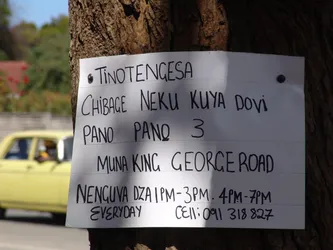 TINOTENGESA
CHIBAGE NEKU KUYA DOVI
PANO PANO 3
MUNA KING GEORGE ROAD
NENGUVA DZA 1PM-3PM. 4PM-7PM
EVERYDAY CEll: 091 318 827